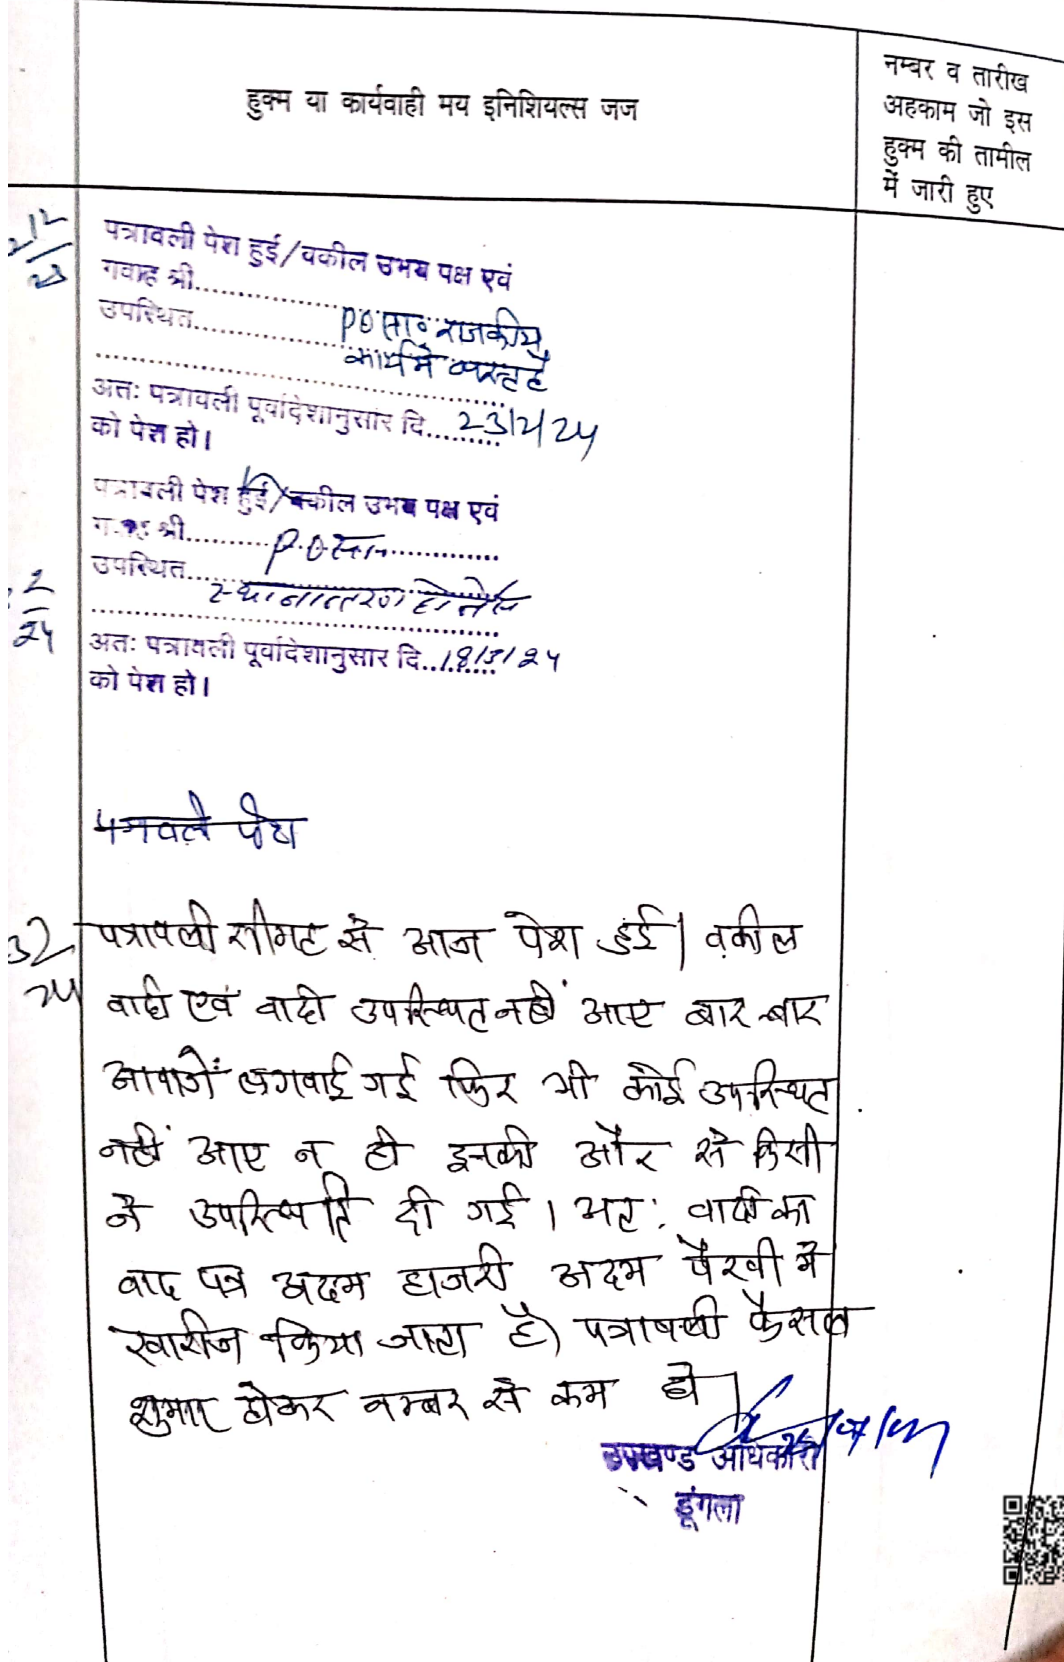 हुक्म या कार्यवाही मय इनिशियल्स जज
नम्बर व तारीख
अहकाम जो इस
हुक्म की तामील
में जारी हुए
12
23
पत्रावली पेश हुई/वकील उभय पक्ष एवं
गवाह श्री
उपस्थित
PO सा० राजकीय
कार्य मे व्यस्त है
अतः पत्रावली पूर्वादेशानुसार दि. 23/2/24
को पेश हो।
पत्रावली पेश हुई/वकील उभय पक्ष एवं
गवाह श्री
P.O सा.
उपस्थित
2
24
स्थानान्तरण होने से
अतः पत्रावली पूर्वादेशानुसार दि. 18/3/24
को पेश हो।
पत्रावली आज पेश हुई। वकील
24
वादी एवं वादी उपस्थित नही आए बार-बार
आवाजें लगवाई गई फिर भी कोई उपस्थित
नहीं आए न ही इनकी और से किसी
ने उपस्थिति दी गई। अतः वादी का
वाद पत्र अदम हाजरी अदम पैरवी मे
खारीज किया जाता है। पत्रावली फैसल
शुमार होकर नम्बर से कम हो।
उपखण्ड अधिकारी
डूंगला